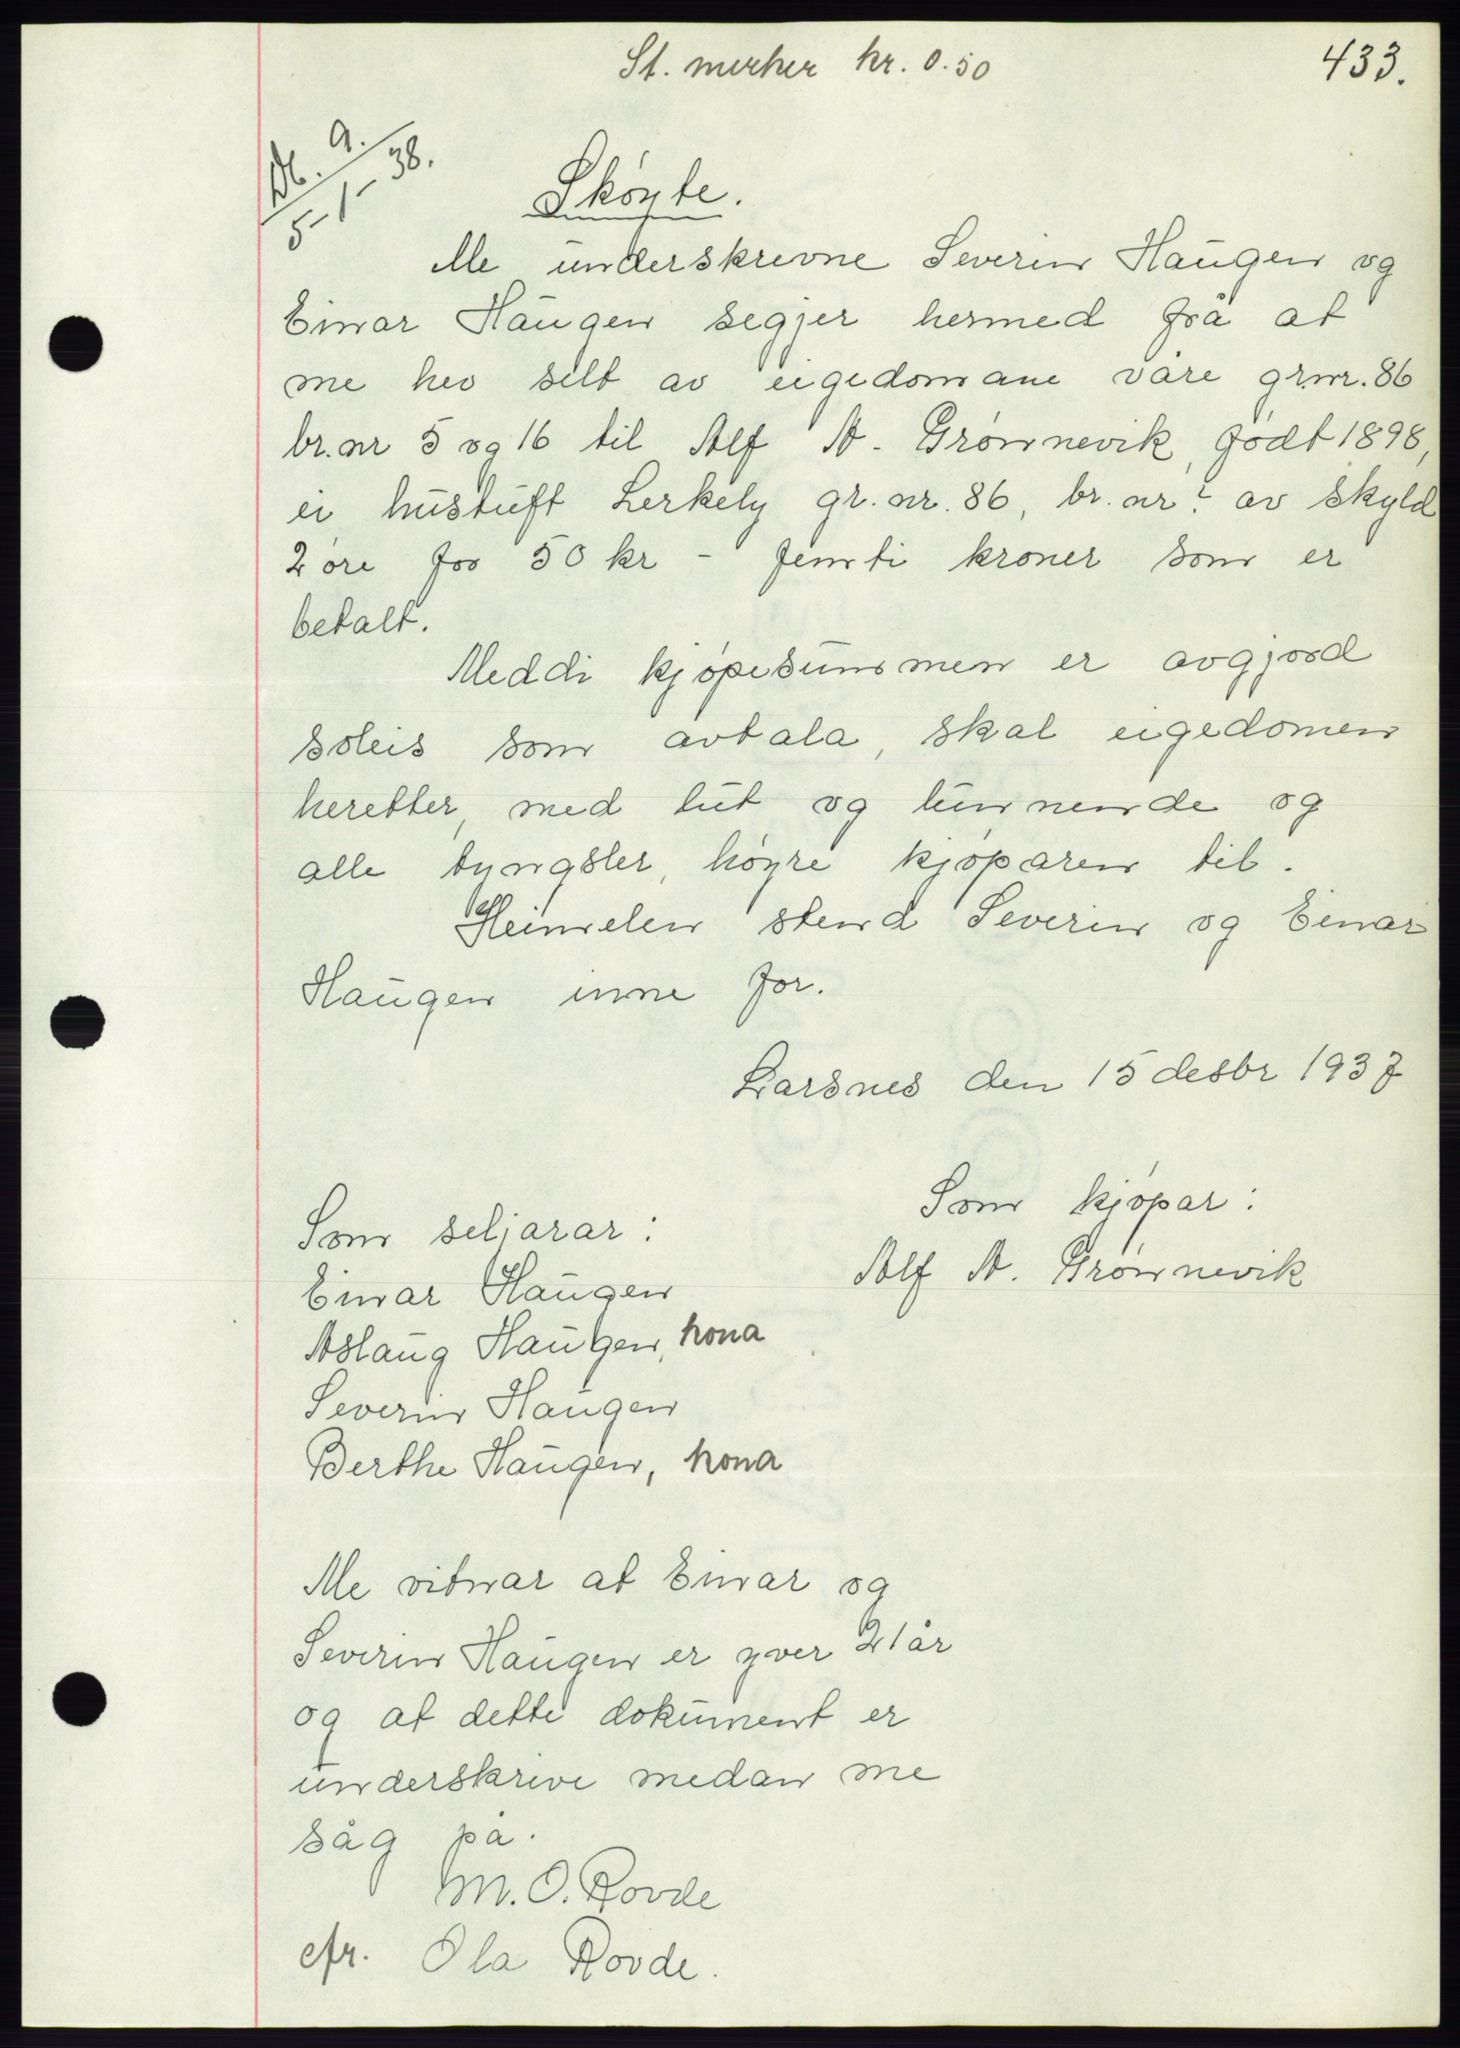 St. merker kr. 0.50
433.
Db. 9.
5-1-38.
Skøyte.
Me underskrevne Severin Haugen og
Einar Haugen segjer hermed frå at
me hev selt av eigedomane våre gr.nr. 86
br.nr 5 og 16 til Alf A. Grønnevik, født 1898,
ei hustuft Lerkely gr. nr. 86, br. nr ? av skyld
2 øre for 50 kr - femti kroner som er
betalt.
Meddi kjøpesummen er avgjord
soleis som avtala, skal eigedomen
heretter, med lut og lunnende og
alle tyngsler, høyre kjøparen til.
Heimelen stend Severin og Einar
Haugen inne for.
Larsnes den 15 desbr 1937
Som seljarar:
Einar Haugen
Aslaug Haugen, kona
Severin Haugen
Berthe Haugen, kona
Som kjøpar:
Alf A. Grønnevik
Me vitnar at Einar og
Severin Haugen er yver 21 år
og at dette dokument er
underskrive medan me
såg på.
M. O. Rovde
cfr. Ola Rovde.